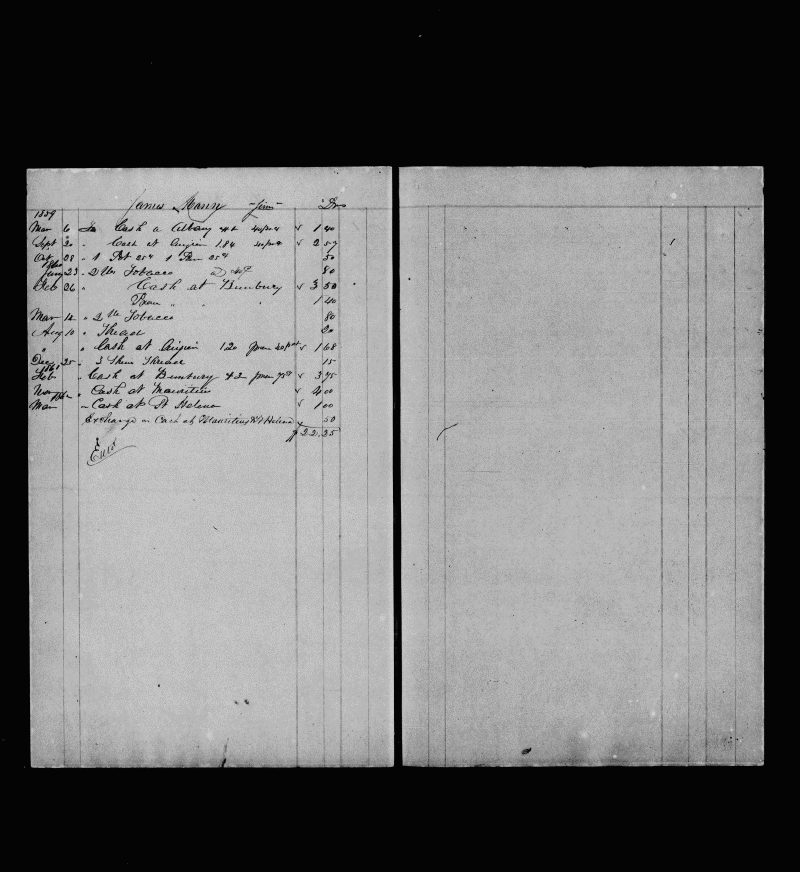 James Mann "Jim" Dr
1859
Mar 6 To Cash a Albany 1 40
Sept 20 " Cash at 1.84 2 57
Oct 28 " 1 Pot 25 cts 1 Pan 25 cts 50
1860
Jany 23 " 2 lbs Tobacco 40 80
Feb 26 " Cash at Bunbury 3 50
" " 1 40
Mar 12 " 2 lb Tobacco 80
Aug 10 " Thread 20
" " Cash at 1.20 prem 40 1 68
Dec 25 " 3 Skeins Thread 15
1861
Feb " Cash at Bunbury prem 75 cts 3 75
Nov " Cash at Mauritius 4 00
Mar " Cash at St Helena 1 00
Exchange on Cash at Mauritius & St Helena 50
$ 22.25